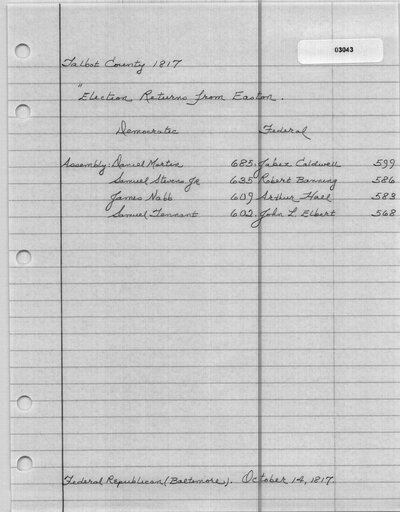 03043
Talbot County 1817
"Election Returns from Easton.
Democratic Federal
Assembly: Daniel Martin 685. Jabez Caldwell 599
Samuel Stevens Jr 635 Robert Banning 586
James Nabb 609 Arthur Hall 583
Samuel Tennant 602. John L. Elbert 568
Federal Republican (Baltimore). October 14, 1817.